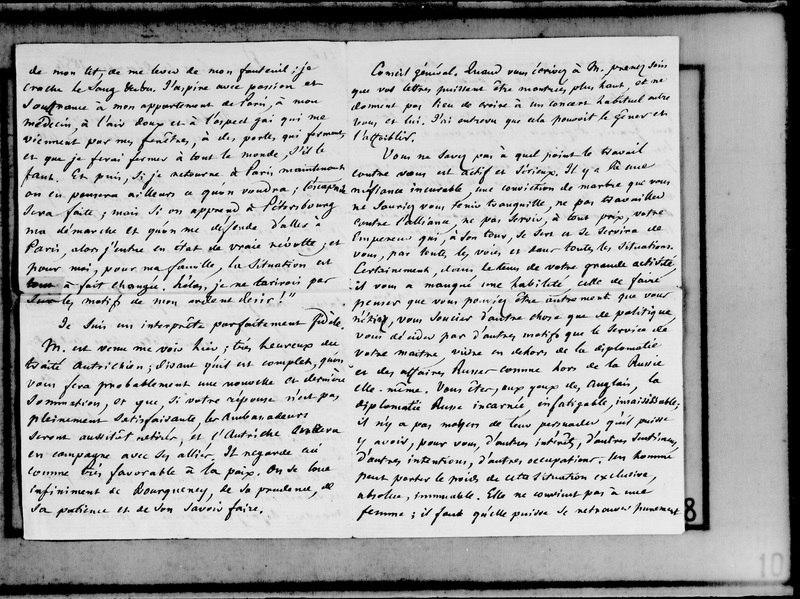 de mon lit, de me lever de mon fauteuil ; je
crache le sang tenu. J'aspire avec passion et
souffrance à mon appartement de Paris, à mon
médecin, à l'air doux et à l'aspect gai qui me
viennent par mes fenêtres, à des portes qui ferment,
et que je ferai fermer à tout le monde, s'il le
faut. Et puis, si je retourne à Paris maintenant
on en pensera ailleurs ce qu'on voudra ; l'escapade
sera faite ; mais si on apprend à Pétersbourg
ma démarche et qu'on me défende d'aller à
Paris, alors j'entre en état de vraie révolte ; et
pour moi, pour ma famille, la situation est
tout à fait changée. Hélas, je ne tarirois pas
sur les motifs de mon ardent désir !"
Je suis un interprète parfaitement fidèle.
M. est venu me voir hier ; très heureux du
traité Autrichien ; disant qu'il est complet, qu'on
vous fera probablement une nouvelle et dernière
sommation, et que, si votre réponse n'est pas
pleinement satisfaisante, les Ambassadeurs
seront aussitôt retirés, et l'Autriche entrera
en campagne avec ses alliés. Il regarde
comme très favorable à la paix. On se loue
infiniment de Bourqueney, de sa prudence, de
sa patience et de son savoir faire.
Conseil général. Quand vous écrivez à M. prenez soin
que vos lettres puissent être montrées plus haut, et ne
donnent pas lieu de croire à un concert habituel entre
vous et lui. J'ai entrevu que cela pouvoit le gêner et
l'affaiblir.
Vous ne savez pas à quel point le travail
contre vous est actif et sérieux. Il y a là une
méfiance incurable, une conviction de marbre que vous
ne sauriez vous tenir tranquille, ne pas travailler
contre l'alliance, ne pas servir, à tout prix, votre
Empereur qui, à son tour, se sert et se servira de
vous, par toutes les voies et dans toutes les situations.
Certainement, dans le tems de votre grande activité,
il vous a manqué une habileté, celle de faire
penser que vous pouviez être autrement que vous
n'étiez, vous soucier d'autre chose que de politique,
vous décider par d'autres motifs que le service de
votre maitre, vivre en dehors de la diplomatie
et des affaires Russes comme hors de la Russie
elle-même. Vous êtes, aux yeux des Anglais, la
diplomatie Russe incarnée, infatigable, insaisissable ;
il n'y a pas moyen de leur persuader qu'il puisse
y avoir, pour vous, d'autres intérêts, d'autres sentimens,
d'autres intentions, d'autres occupations. Un homme
peut porter le poids de cette situation exclusive,
absolue, immuable. Elle ne convient pas à une
femme ; il faut qu'elle puisse se retrouver purement
8
10